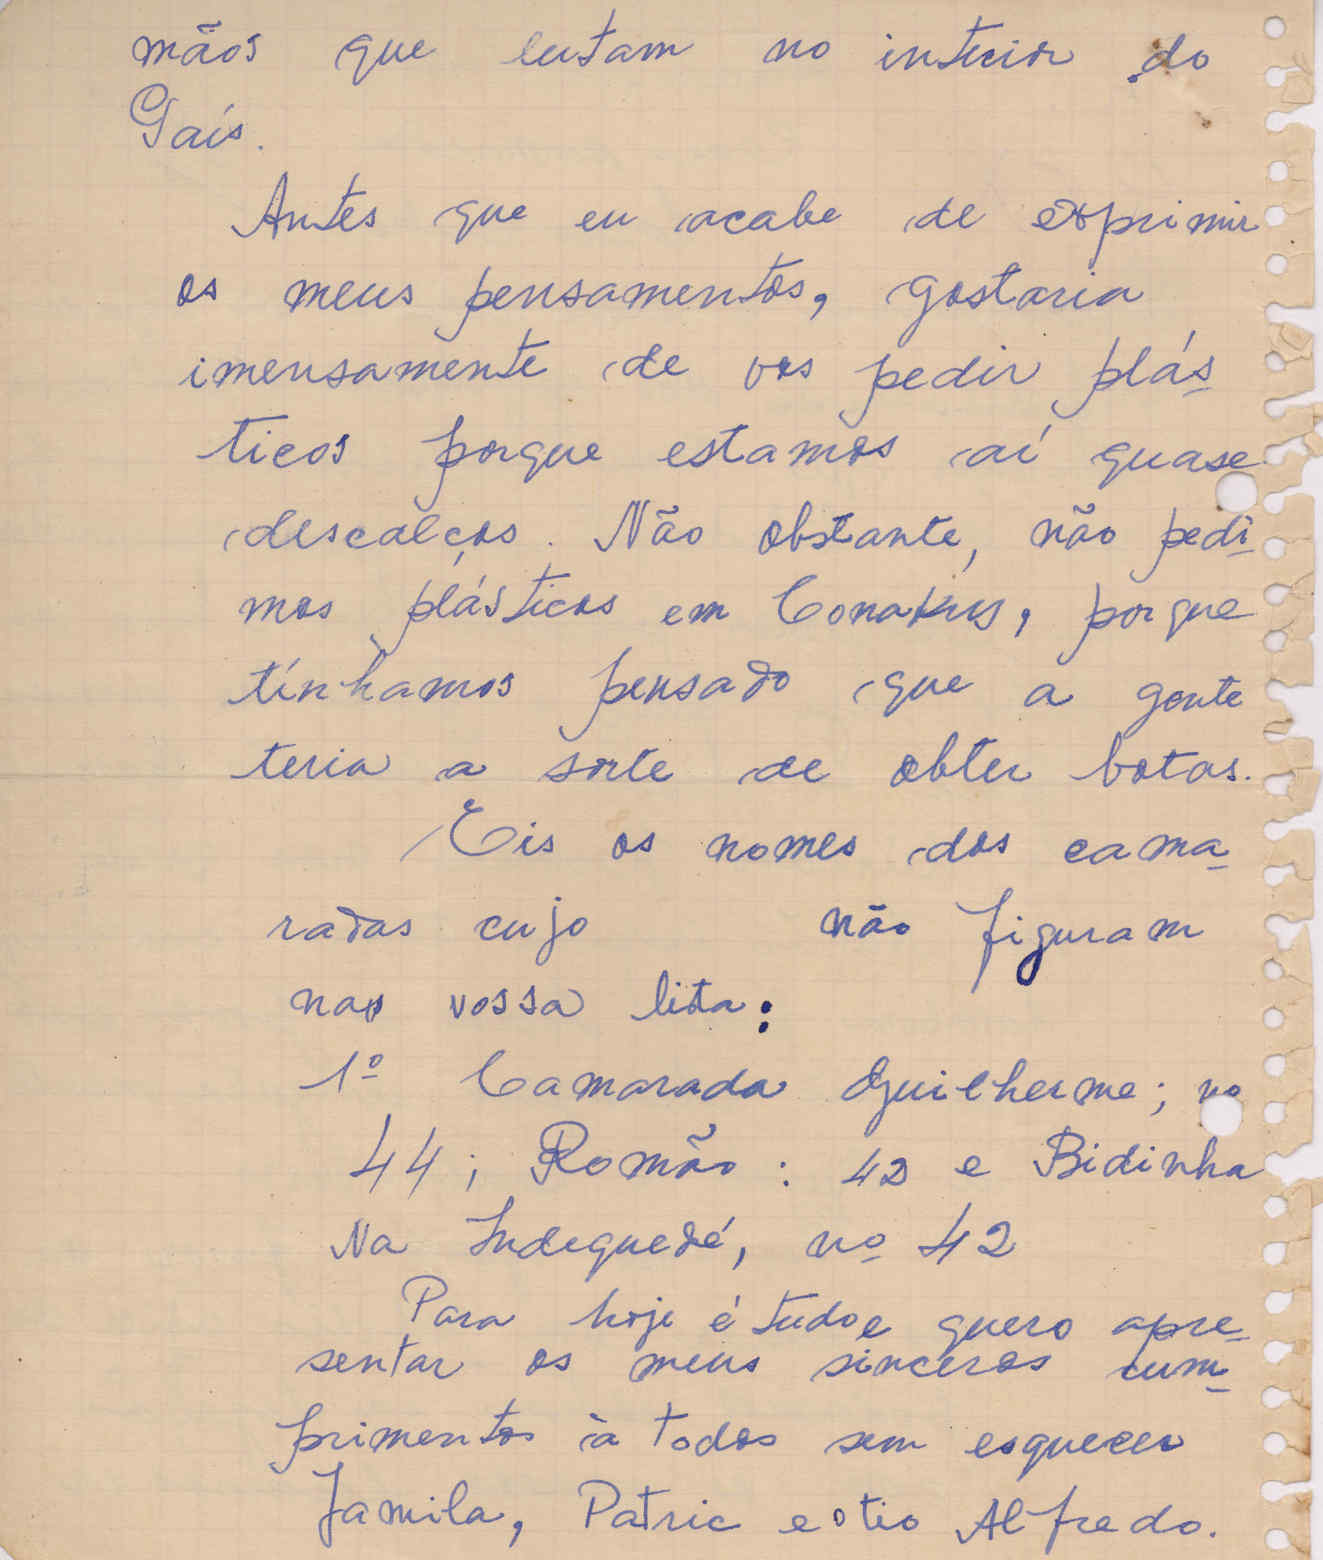 mãos que lutam no interior do
País.
Antes que eu acabe de exprimir
os meus pensamentos, gostaria
imensamente de vos pedir plás-
ticos porque estamos aí quase
descalços. Não obstante, não pedi-
mos plásticos em Conakry, porque
tínhamos pensado que a gente
teria a sorte de obter botas.
Eis os nomes dos cama-
radas cujo não figuram
na vossa lista:
1º Camarada Guilherme; nº
44; Romão: 42 e Bidinha
Na Indequedé, nº 42
Para hoje é tudo e quero apre-
sentar os meus sinceros cum-
primentos à todos sem esquecer
Jamila, Patric e o tio Alfredo.